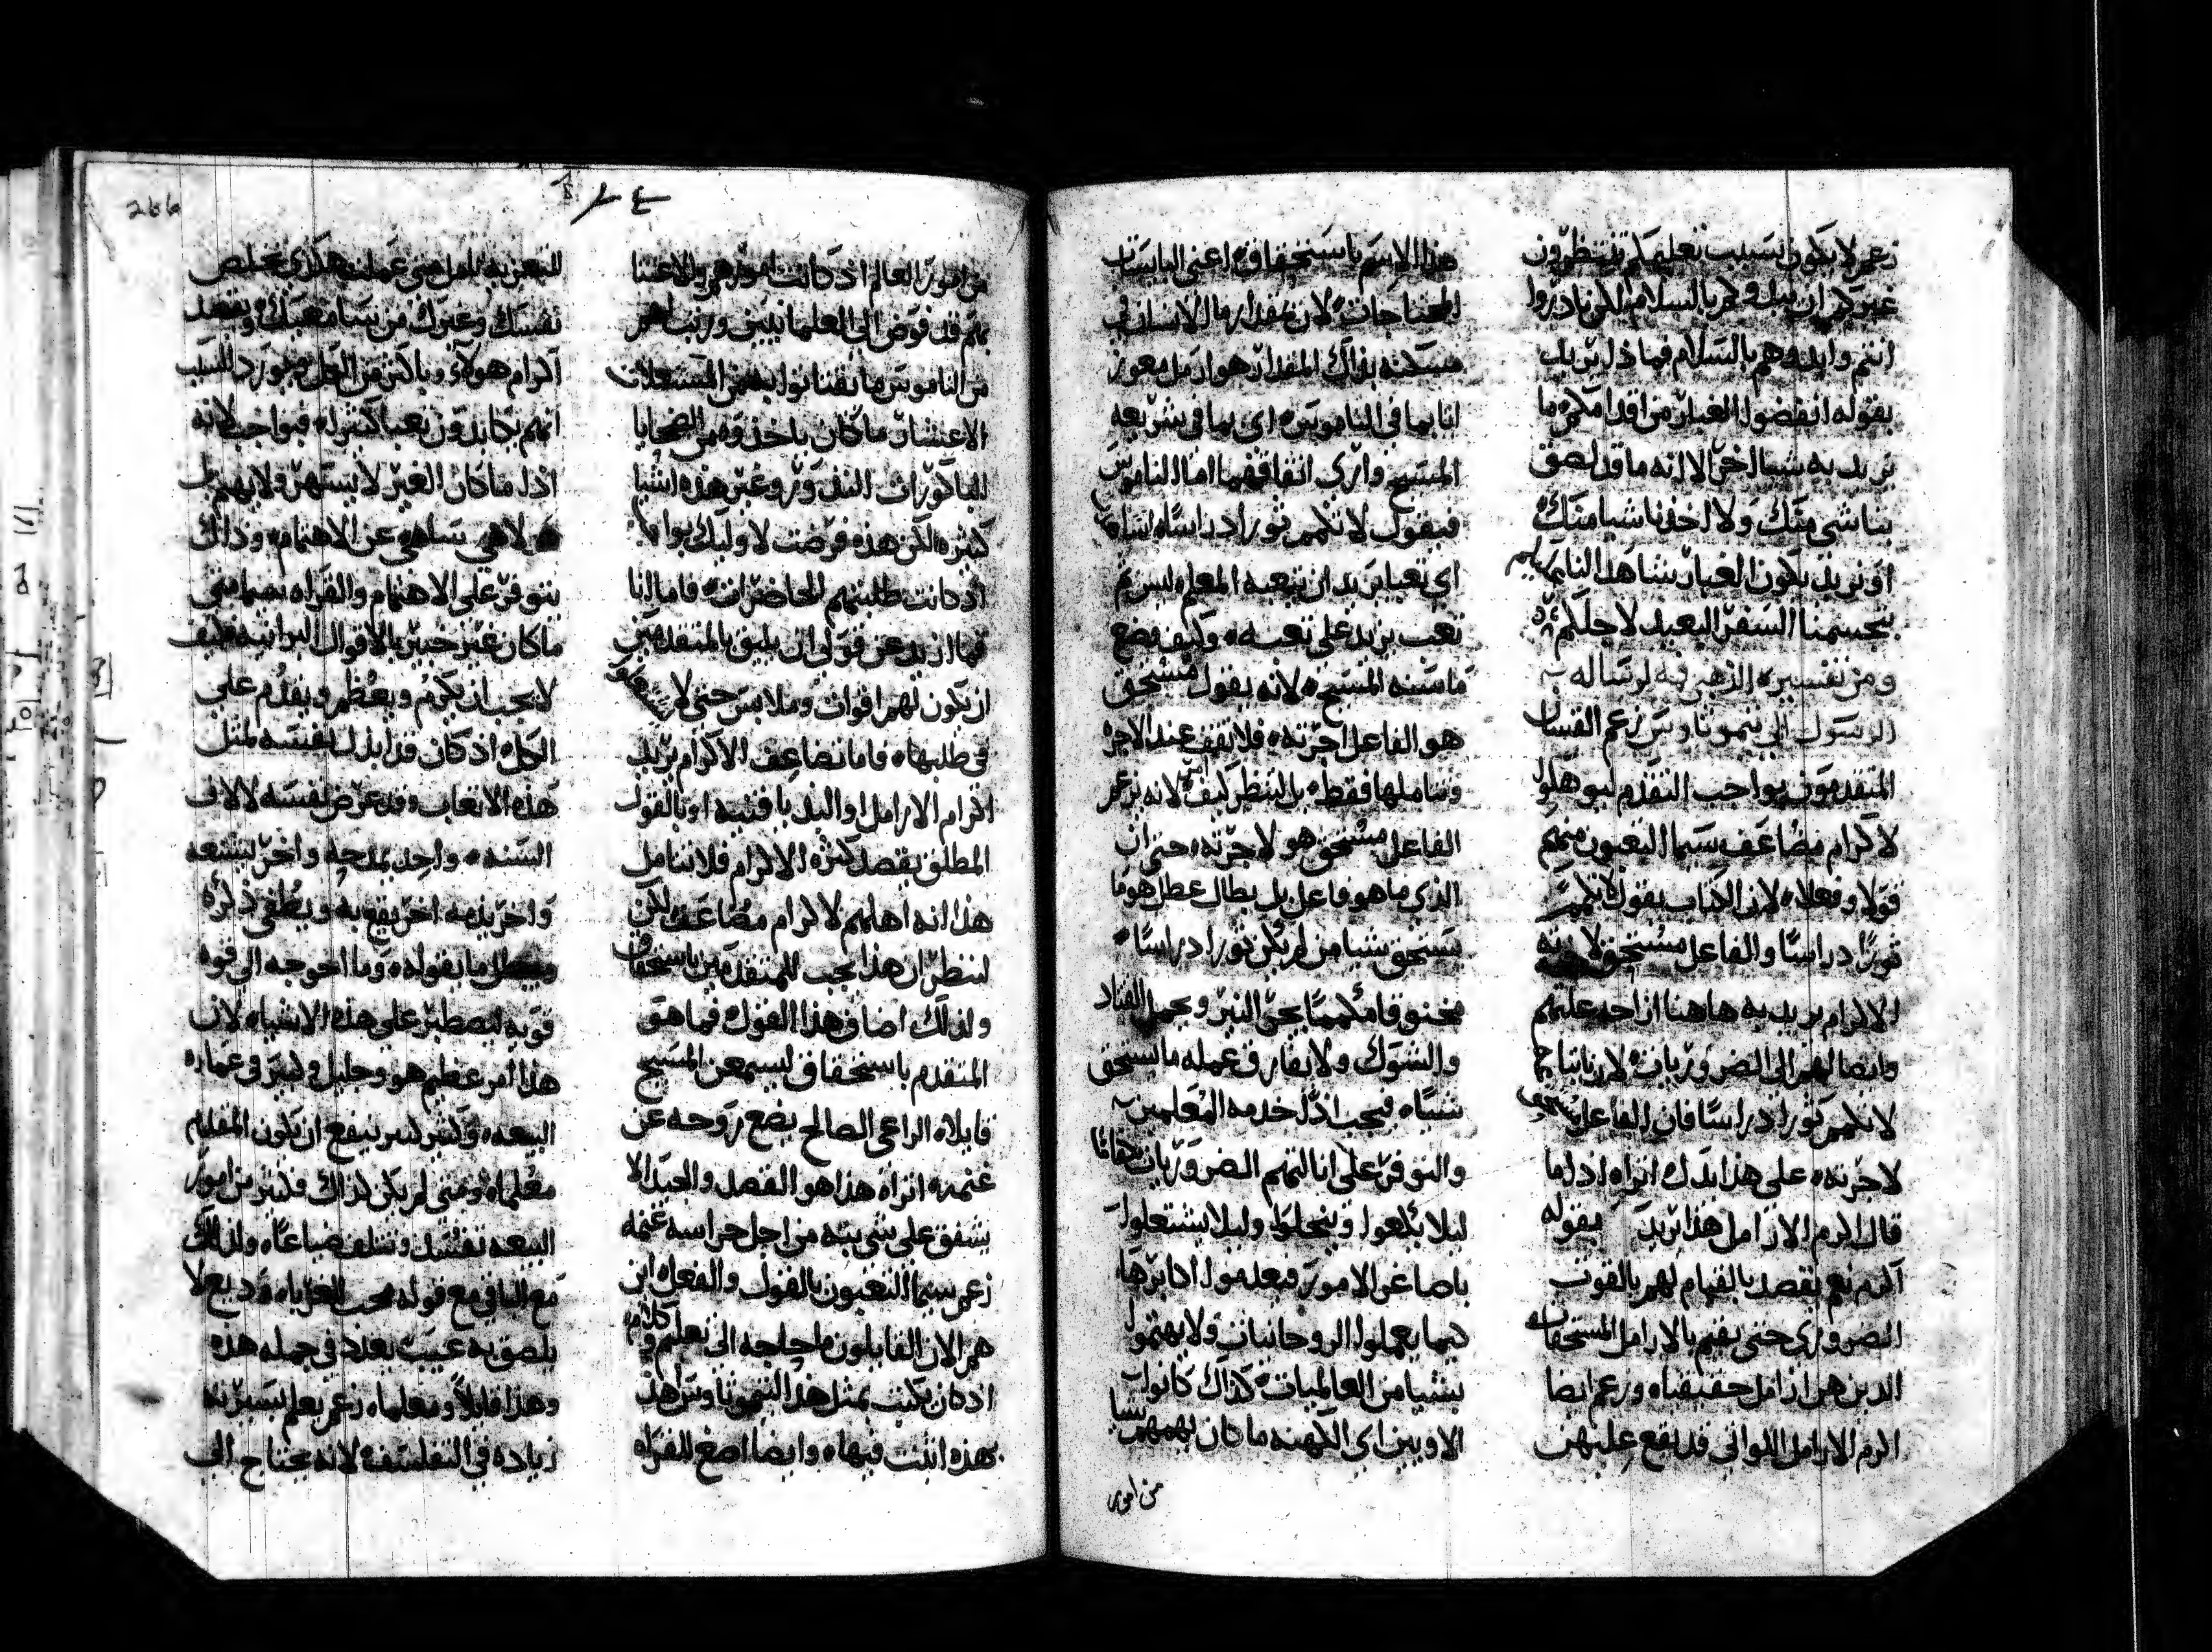 زعم لا يكون بسبب تعليمكم تنتظرون
غيركم ان يبدوكم بالسلام لكن بادروا
انتم وابدوهم بالسلام فماذا يريد
بقوله انفضوا الغبار من اقدامكم ما
يريد به شيا اخر الا انه ما قد لصق
بنا شي منك ولا اخذنا شيا منك
او يريد يكون الغبار شاهدا لنا عليهم
بتجسمنا السفر البعيد لاجلكم
ومن تفسيره الذهبي فيه لرساله
الرسول الى تيموتاوس زعم القسان
المتقدمون بواجب التقدم ليوهلوا
لاكرام مضاعف سيما التعبون منهم
قولا وفعلا لان الكتاب يقول لا تكمم
ثورا دراسا والفاعل مستحق لاجرته
الاكرام يريد به هاهنا ازاحه علتهم
وايضا لهم الى الضروريات لان بانتاجه
لا تكمم ثورا دراسا فان الفاعل مستحق
لاجرته على هذا يدل اتراه اذا ما
قال اكرم الارامل هذا يريد بقوله
اكرم نعم يقصد بالقيام لهم بالقوت
الضروري حتى يقيم بالارامل المستحقات
الذين هن ارامل حقيقيات وزعم ايضا
اكرم الارامل اللواتي قد يقع عليهن
هذا الاسم باستحقاقه اعني البايسات
المحتاجات لان بمقدار ما الانسان في
مسكنه بذاك المقدار هو ارمل معوز
اتا بما في الناموس اي بما في شريعه
المسيح وارى اتفاقهما اما الناموس
فيقول لا تكمم ثورا دراسا
اي تعبا يريد ان يتعبه المعلم ليس ثم
تعب يزيد على تعبه وكيف وضع
ما سنه المسيح لانه يقول مستحق
هو الفاعل اجرته فلا تقف عند الاجره
وتتاملها فقط بل لتنظر كيف امر لانه زعم
الفاعل مستحق هو لاجرته حتى ان
الذي ما هو فاعل بل بطال عطل هو ما
يستحق شيا من لم يكن ثورا دراسا
مختنق فا مكمما يجر النير ويحمل القتاد
والشوك ولا يفارق عمله ما يستحق
شيا فيجب اذا لخدمه المعلمين
والتوفر على انالتهم الضروريات
ليلا يكلعوا وينحلوا وليلا يشتغلوا
باصاغر الامور فيعدموا اكابرها
كيما يعملوا الروحانيات ولا يهتموا
بشيا من العالميات كذاك كانوا
الاويين اي الكهنه ما كان يهمهم شيا
من امور
من امور العالم اذ كانت امورهم والاعتنا
بهم قد فوض الى العلمانيين ورتب لهم
من الناموس ما يقتاتوا به من
الاعشار ما كان ياخذوه من الضحايا
الباكورات النذور وغير هذه اشيا
كثيره لكن هذه فرضت لاوليك بواجب
اذ كانت طلبتهم الحاضرات فاما انا
فما ازيد عن قولي ان يليق بالمتقدمين
ان يكون لهم اقوات وملابس حتى لا
في طلبها فاما تضاعف الاكرام يريد
اكرام الارامل او اليد باقنيه او بالقول
المطلق يقصد كثره الاكرام فلا نتامل
هذا انه اهلهم لاكرام مضاعف لكن
لننظر ان هذا يجب للمتقدمين باستحقاق
ولذلك اضاف هذا القول فما هو
المتقدم باستحقاق ليسمع من المسيح
قايلا الراعي الصالح يضع روحه عن
غنمه اتراه هذا هو القصد والحد الا
يشفق على شي بته من اجل حراسه غنمه
زعم سيما التعبون بالقول والفعل اين
هم الان القايلون ما حاجه الى تعليم وكلام
اذ كان يكتب بمثل هذا لتيموتاوس اهذ
بهذه اثبت فيها وايضا اصغ للقراه
للتعزيه تامل متى عملت هكذى تخلص
نفسك وغيرك من يسامعك ويقصد
اكرام هولاء وباكثر من الكل ويورد السبب
انهم يكابدون تعبا كثيرا فبواجب لانه
اذا ما كان الغير لا يسهر ولا يهتم بل
هو لاهي ساهي عن الاهتمام وذلك
يتوفر على الاهتمام والقراه سيما متى
ما كان غير خبير بالاقوال البرانيه فكيف
لا يجب ان يكرم ويعظم ويقدم على
الكل اذ كان قد ابذل نفسه لمثل
هذه الاتعاب وقد عرض نفسه لالاف
السنه واحد يمدحه واخر يشنعه
واخر يذمه اخر يقع به ويطفي ذكره
ويبطل ما يقوله وما احوجه الى قوه
قويه ليصطبر على هذه الاشياء لان
هذا امر عظيم هو وجليل وكبير في عماره
البيعه وكثير كثير ينفع ان يكون المقدم
معلما ومتى لم يكن كذاك فكثير من امور
البيعه تفسد وتتلف ضياعا ولذلك
مع الباقي مع قوله محب للغرباء وديع لا
يلصق به عيب يعدد في جمله هذه
وهذا قايلا ومعلما زعم يعلم بسيرته
زياده في التفلسف لانه يحتاج الى